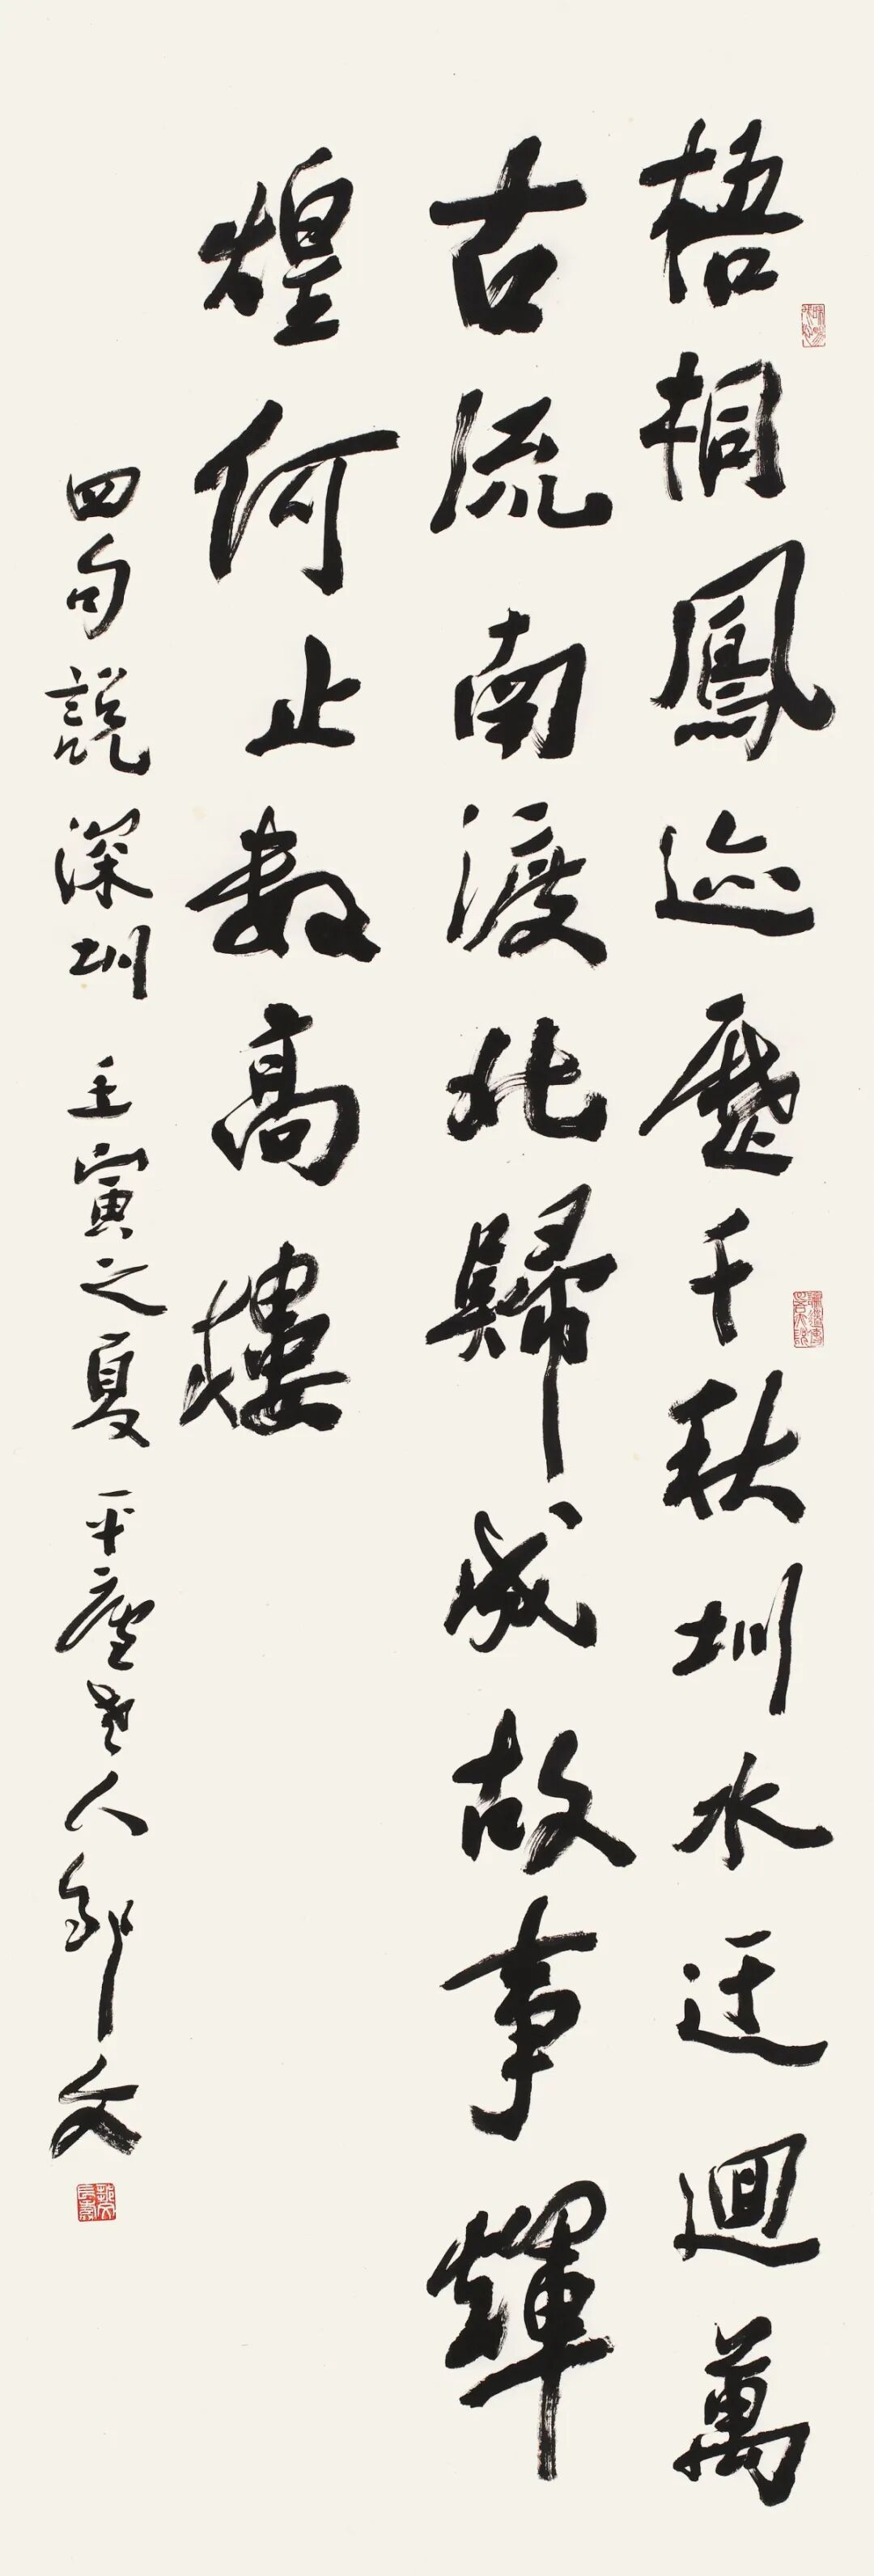 梧桐鳳迹歷千秋圳水迂迴萬
古流南渡北歸成故事輝
煌何止數高樓
四句說深圳 壬寅之夏 平廬老人郭文